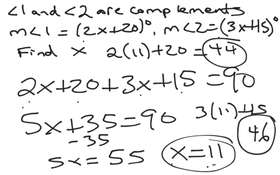 <1 and <2 are complements
m<1 = (2x+20)°, m<2 = (3x+15)°
Find x 2(11)+20 = 44
2x+20+3x+15=90
5x+35=90 3(11)+15
-35 46
5x = 55 x=11